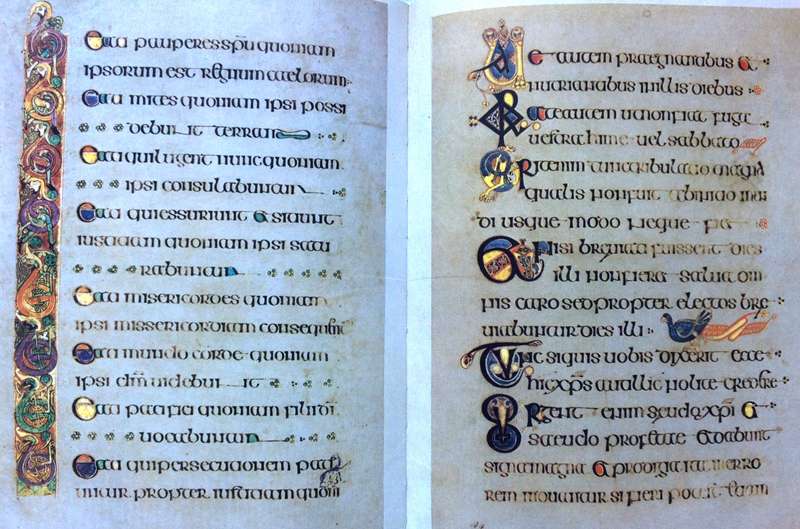 Beati pauperes spu quoniam
ipsorum est regnum caelorum
Beati mites quoniam ipsi possi
debunt terram
Beati qui lugent nunc quoniam
ipsi consulabuntur
Beati qui essuriunt et sitiunt
iustitiam quoniam ipsi satu
rabuntur
Beati misericordes quoniam
ipsi misericordiam
Beati mundo corde quoniam
ipsi dm videbunt
Beati pacifici quoniam filii di
vocabuntur
Beati qui persecutionem pati
untur propter iustitiam quoni
Vae autem praegnantibus et
nutrientibus in illis diebus
Orate autem ut non fiat fuga
vestra hieme vel sabbato
Erit enim tunc tribulatio magna
qualis non fuit ab initio mun
di usque modo neque fiet
Et nisi breviati fuissent dies
illi non fieret salva om
nis caro sed propter electos bre
viabuntur dies illi
Tunc si quis vobis dixerit ecce
hic xps aut illic nolite credere
Surgent enim seudo xpi et
seudo profetae et dabunt
signa magna et prodigia ita in erro
rem si fieri potest etiam